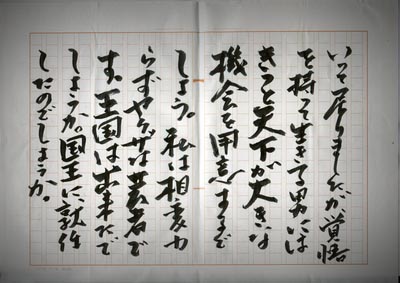 いって居りましたが覚悟
を持って生きてる男には
きっと天下が大きな
機会を用意するで
しょう。私は相変わ
らずヤクザは芸者で
す。王国は出来たで
しょうか。国王に就任
したのでしょうか。